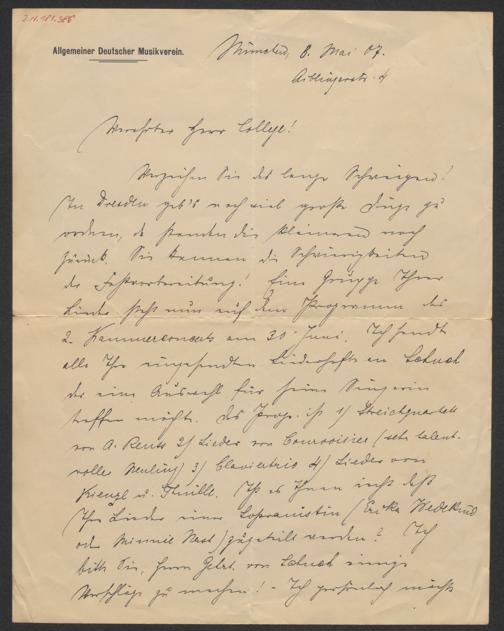 I.N. 181.386
Allgemeiner Deutscher Musikverein.
München, 8. Mai 07.
Aiblingerstr. 4
Verehrter Herr College!
Verzeihen Sie das lange Schweigen!
In Dresden gab's noch viel große Dinge zu
ordnen, da standen die kleineren noch
zurück. Sie kennen die Schwierigkeiten
der Festvorbereitung! Eine Gruppe Ihrer
Lieder steht nun auf dem Programm des
2. Kammerconcerts am 30 Juni. Ich sandte
alle Ihre eingesandten Liederhefte an Schuch
der eine Auswahl für seine Sängerin
treffen möchte. Das Progr. ist 1) Streichquartett
von A. Reuss 2) Lieder von Courvoisier (sehr talent-
voller Neuling) 3) Claviertrio 4) Lieder von
Kienzl u. Thuille. Ist es Ihnen recht daß
Ihre Lieder einer Sopranistin (Erika Wedekind
oder Minnie Nast) zugeteilt werden? Ich
bitte Sie, Herrn Gehrt. von Schuch einige
Vorschläge zu machen! - Ich persönlich möchte